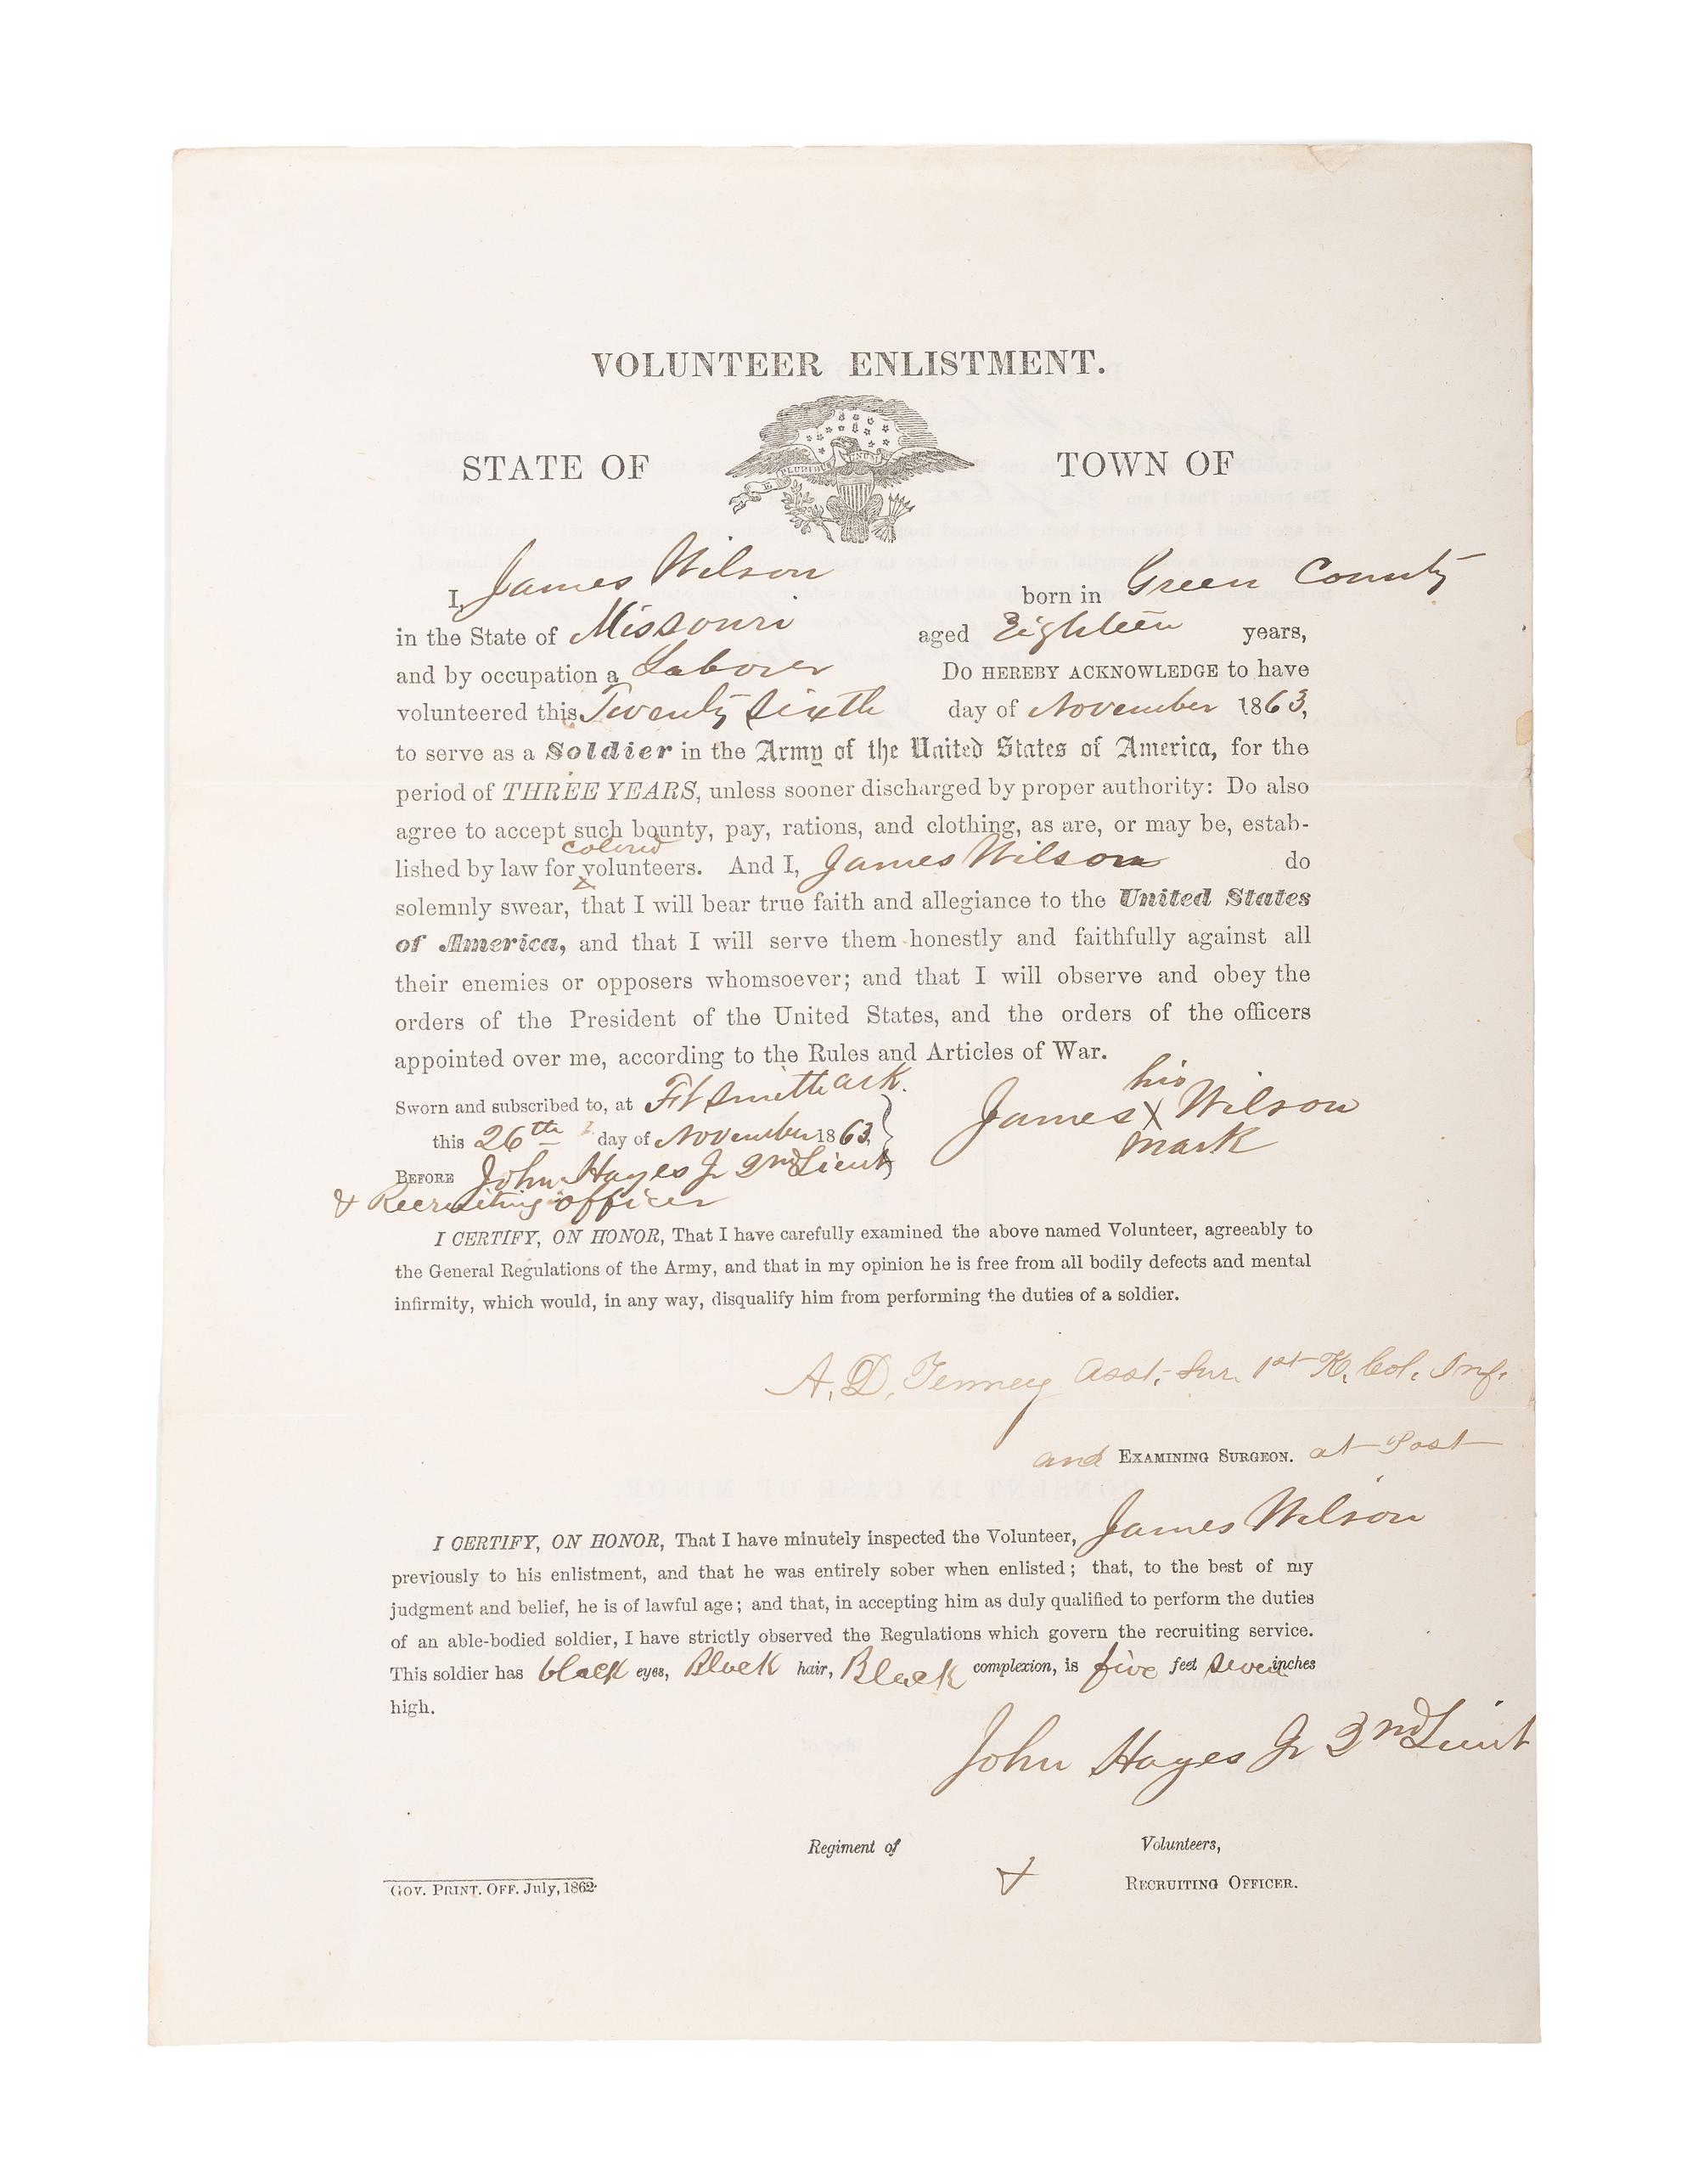 VOLUNTEER ENLISTMENT.
E PLURIBUS UNUM
STATE OF TOWN OF
I, James Wilson born in Green County
in the State of Missouri aged Eighteen years,
and by occupation a Laborer Do HEREBY ACKNOWLEDGE to have
volunteered this Twenty Sixth day of November 1863,
to serve as a Soldier in the Army of the United States of America, for the
period of THREE YEARS, unless sooner discharged by proper authority: Do also
agree to accept such bounty, pay, rations, and clothing, as are, or may be, estab-
colored
lished by law for volunteers. And I, James Wilson do
solemnly swear, that I will bear true faith and allegiance to the United States
of America, and that I will serve them honestly and faithfully against all
their enemies or opposers whomsoever; and that I will observe and obey the
orders of the President of the United States, and the orders of the officers
appointed over me, according to the Rules and Articles of War.
Sworn and subscribed to, at Ft Smith Ark.
this 26th day of November 1863,
his
James X Wilson
mark
BEFORE John Hayes Jr 2nd Lieut
& Recruiting officer
I CERTIFY, ON HONOR, That I have carefully examined the above named Volunteer, agreeably to
the General Regulations of the Army, and that in my opinion he is free from all bodily defects and mental
infirmity, which would, in any way, disqualify him from performing the duties of a soldier.
A. D. Tenney Asst. Sur. 1st K. Col. Inf.
and EXAMINING SURGEON. at Post
I CERTIFY, ON HONOR, That I have minutely inspected the Volunteer, James Wilson
previously to his enlistment, and that he was entirely sober when enlisted; that, to the best of my
judgment and belief, he is of lawful age; and that, in accepting him as duly qualified to perform the duties
of an able-bodied soldier, I have strictly observed the Regulations which govern the recruiting service.
This soldier has black eyes, Black hair, Black complexion, is five feet seven inches
high.
John Hayes Jr 2nd Lieut
Regiment of Volunteers,
& RECRUITING OFFICER.
GOV. PRINT. OFF. July, 1862.